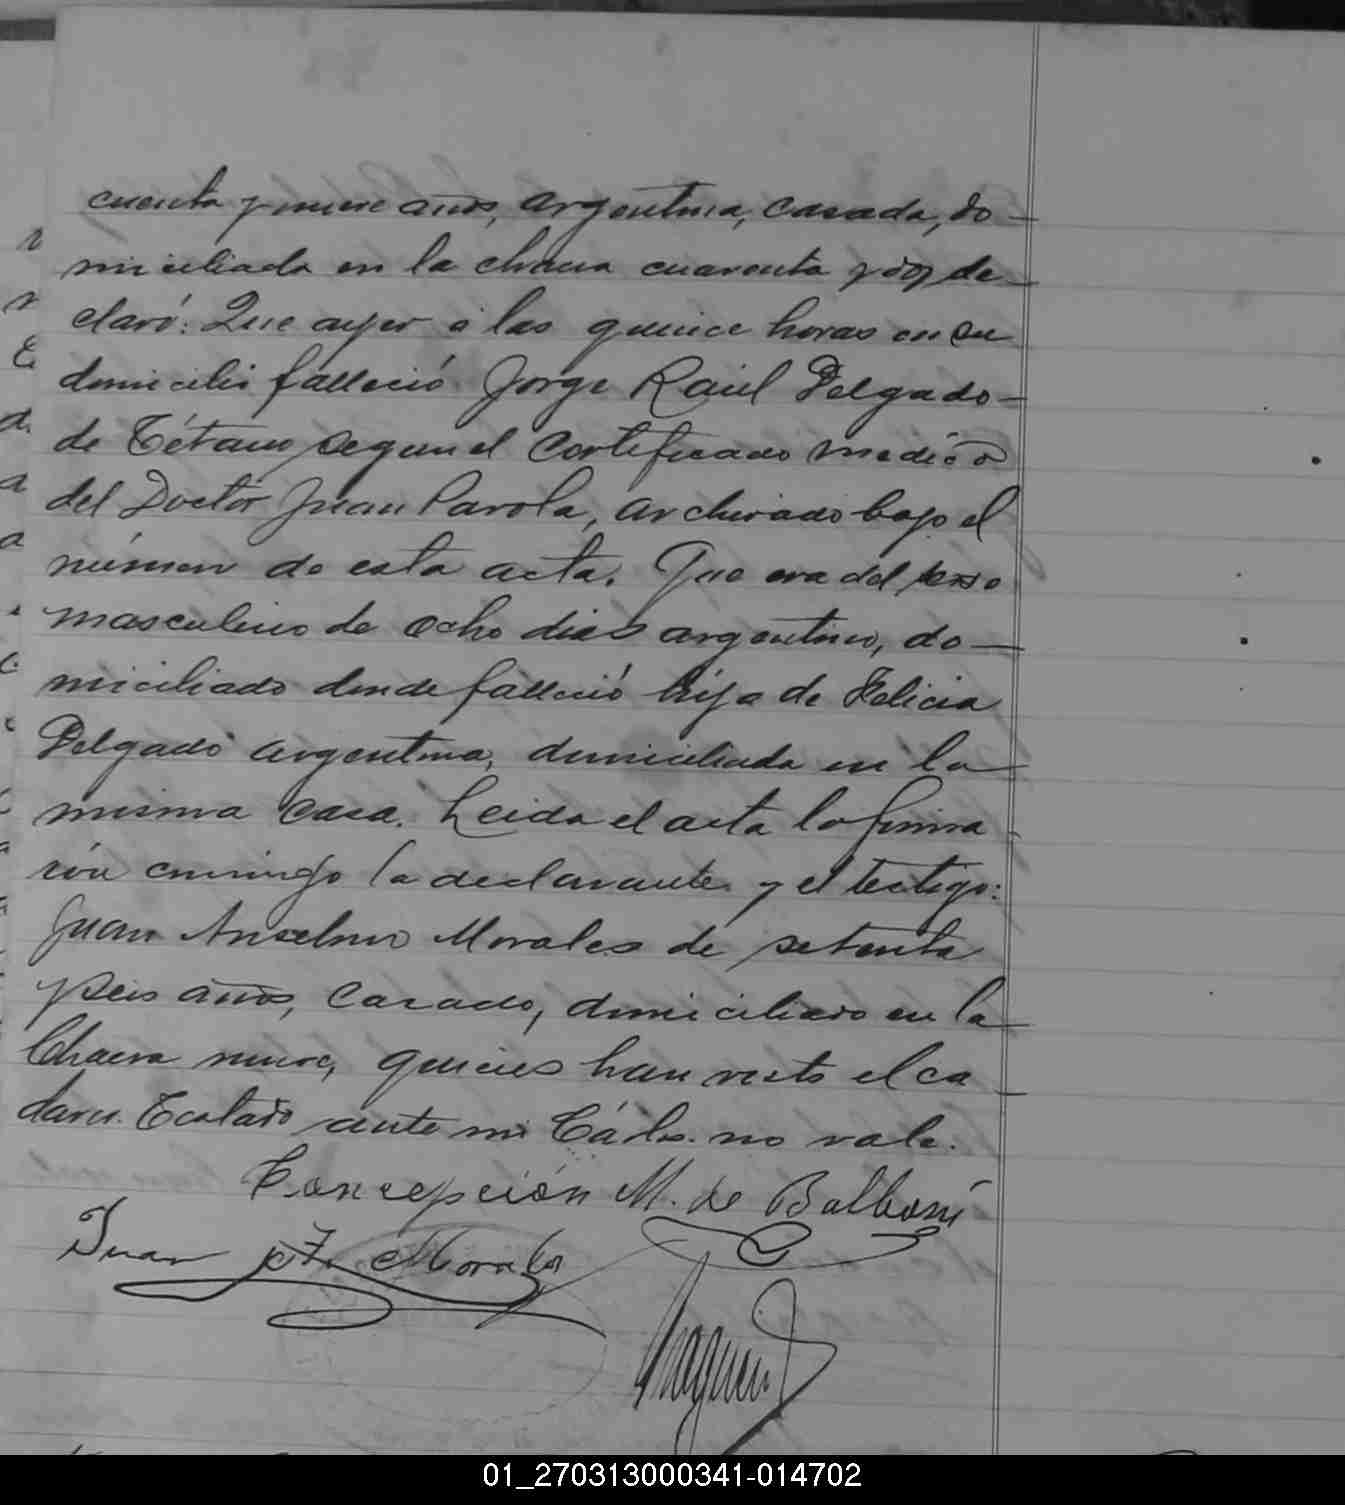 cuenta y nueve años, argentina, casada, do-
miciliada en la chacra cuarenta y dos de-
claró: Que ayer a las quince horas en su
domicilio falleció Jorge Raúl Delgado-
de Tétano segun el certificado medico
del Doctor Juan Parola, archivado bajo el
número de esta acta. Que era del sexo
masculino de ocho dias argentino, do-
miciliado donde falleció hijo de Felicia
Delgado argentina, domiciliada en la
misma casa. Leida el acta la firma
ron conmigo la declarante y el testigo:
Juan Anselmo Morales de setenta
y seis años, casado, domiciliado en la
Chacra nueve, quienes han visto el ca-
daver. Testado ante mi no vale.
Concepción M. de Balboni
Juan A. Morales
01_270313000341-014702